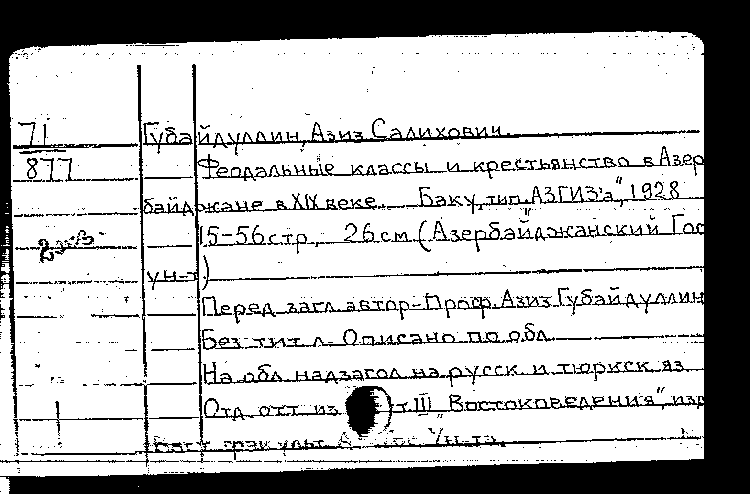 71
Губайдуллин, Азиз Салихович.
877
Феодальные классы и крестьянство в Азер
байджане в XIX веке. Баку, тип. "АЗГИЗ'а", 1928
15-56 стр., 26 см (Азербайджанский Гос
2 экз.
ун-т)
Перед загл. автор - Проф. Азиз Губайдуллин
Без тит. л. Описано по обл.
На обл. надзагол. на русск. и тюркск. яз.
Отд. отт. из т. III "Востоковедения", изд
Ун-та.